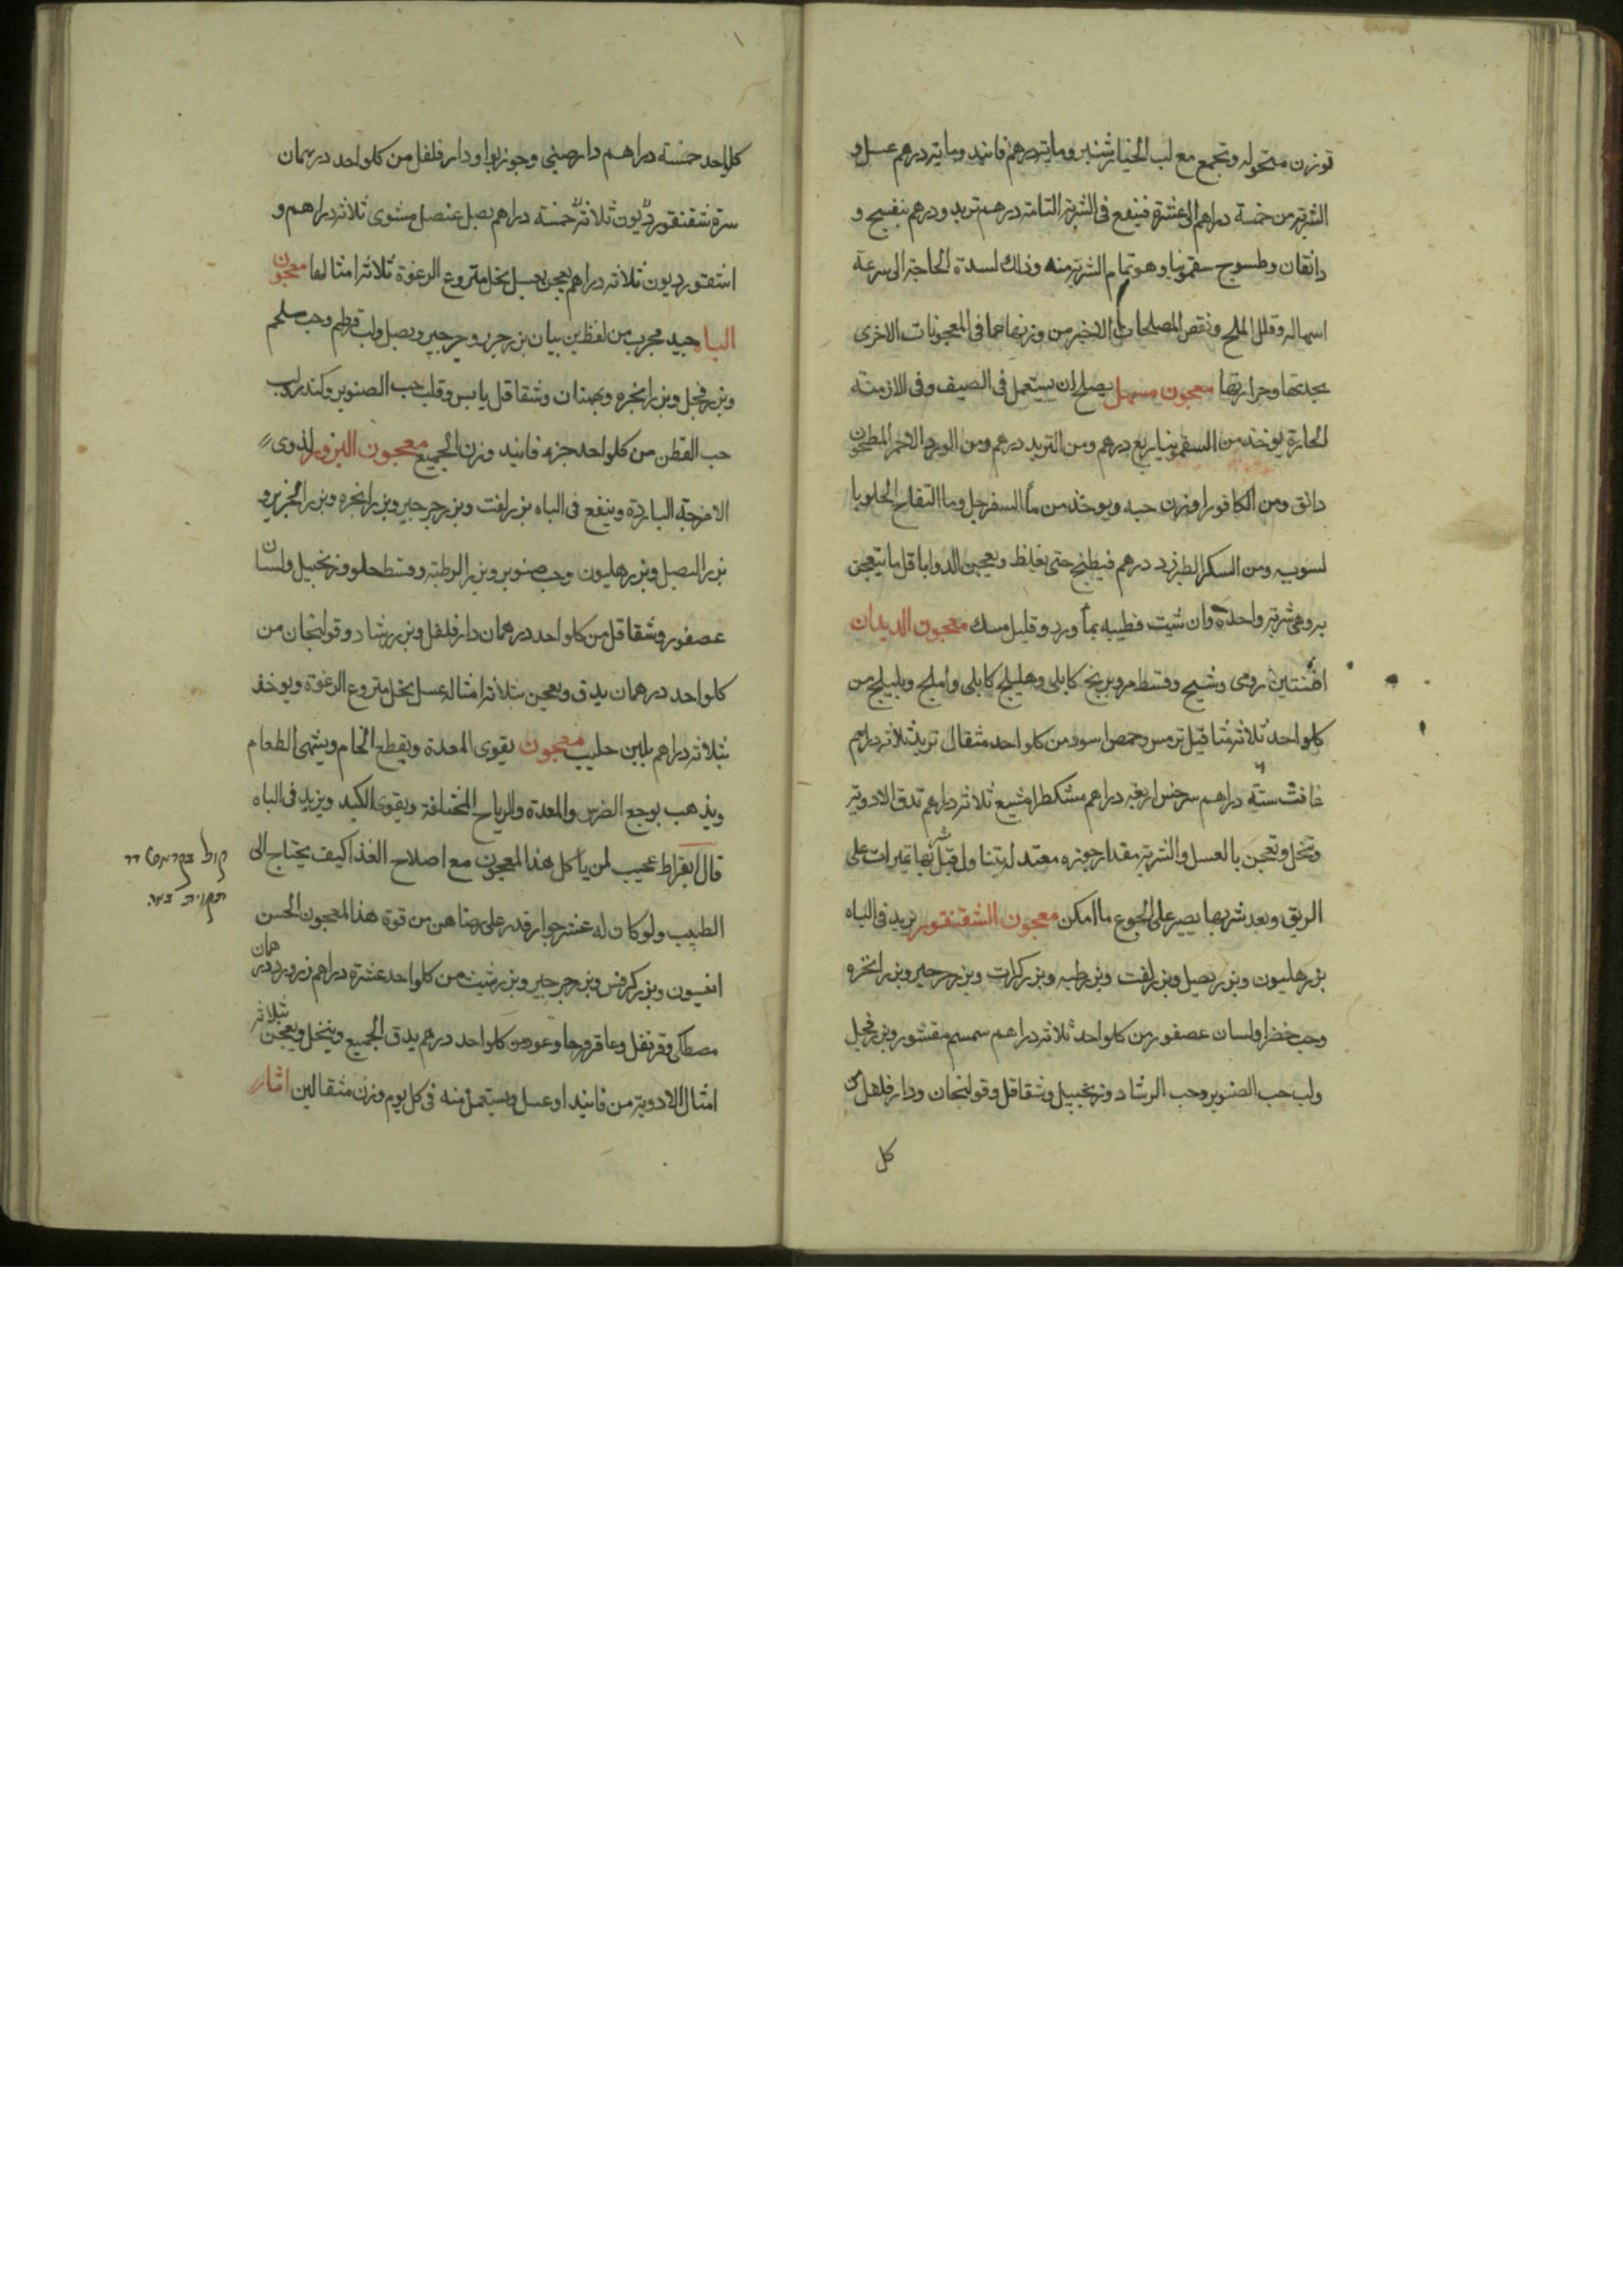 توزن منخوله وتجمع مع لب الخيار شنبر ومايتر درهم فانيد ومايتر درهم عسل و
الشربتر من خمسة دراهم الى عشرة فينفع فى الشربتر التامتر درهم تربد ودرهم بنفسج و
دانقان وطسوج سقمونيا وهو تمام الشربتر منه وذلك لسدة الحاجتر الى سرعة
اسهاله وقلل الملح ونقص المصلحات الاخر من وزنها عما فى المعجونات الاخرى
بحدتها وحرارتها معجون مسهل يصلح ان يستعمل فى الصيف وفى الازمنة
الحارة يوخذ من السقمونيا ربع درهم ومن التربد درهم ومن الورد الاحمر المطحون
دانق ومن الكافور وزن حبه ويوخذ من ماً السفرجل وما التفاح الحلو با
لسويه ومن السكر الطبرزد درهم فيطبخ حتى يغلظ ويعجن الدوا باقل ما يتعجن
به وهى شربتر واحدة وان شيت فطيبه بماً ورد وقليل مسك معجون الديدان
افسنتين رومى وشيح وقسط مر وبرنج كابلى وهليلج كابلى واملج وبليلج من
كلواحد ثلاثر مثاقيل ترمس وحمص اسود من كلواحد مثقال تربد ثلاثر دراهم
غافث ستة دراهم سرخس اربعتر دراهم مشكطرامشيع ثلاثر دراهم تدق الادويتر
وتنخل وتعجن بالعسل والشربتر مقدار جوزه معتدلة يتناول قبل شربها تميرات على
الريق وبعد شربها يصبر على الجوع ما امكن معجون الشقنقور يزيد فى الباه
بزر هليون وبزر بصل وبزر لفت وبزر رطبه وبزر كراث وبزر جرجير وبزر انجره
وحب خضرا ولسان عصفور من كلواحد ثلاثر دراهم سمسم مقشور وبزر فجل
ولب حب الصنوبر وحب الرشاد وزنجبيل وشقاقل وقولنجان ودار فلفل من
كل
كلواحد خمسة دراهم دارصينى وجوزبوا ودارفلفل من كلواحد درهمان
سرة شقنقور ثلاثة خمسة دراهم بصل عنصل مشوى ثلاثر دراهم و
اسقورديون ثلاثر دراهم يعجن بعسل نحل منزوع الرغوة ثلاثر امثالها معجون
الباه جيد مجرب من لفظ بن بيان بزر جزر وجرجير وبصل ولب قرطم وحب سلجم
وبزر فجل وبزر انجره وبهمنان وشقاقل يابس وقلب حب الصنوبر وكندر ولب
حب القطن من كلواحد جزء فانيد وزن الجميع معجون البزور لذوى
الامزجة الباردة وينفع فى الباه بزر لفت وبزر جرجير وبزر انجره وبزر الجزر و
بزر البصل وبزر هليون وحب صنوبر وبزر الرطبتر وقسط حلو وزنجبيل ولسان
عصفور وشقاقل من كلواحد درهمان دار فلفل وبزر رشاد وقولنجان من
كلواحد درهمان يدق ويعجن بثلاثر امثاله عسل نحل منزوع الرغوة ويوخذ
ثلاثر دراهم بلبن حليب معجون يقوى المعدة ويقطع الخام ويشهى الطعام
ويذهب بوجع الضرس والمعدة والرياح المختلفة ويقوى الكبد ويزيد فى الباه
قال بقراط عجيب لمن ياكل هذا المعجون مع اصلاح الغذا كيف يحتاج الى
الطبيب ولو كان له عشر جوار قدر على رضاهن من قوة هذا المعجون الحسن
انيسون وبزر كرفس وبزر جرجير وبزر شبت من كلواحد عشرة دراهم زرورد درهمان
مصطكى وقرنفل وعاقرقرحا وعود من كلواحد درهم يدق الجميع وينخل ويعجن بثلاثر
امثال الادويتر من فانيد او عسل ويستعمل منه فى كل يوم وزن مثقالين